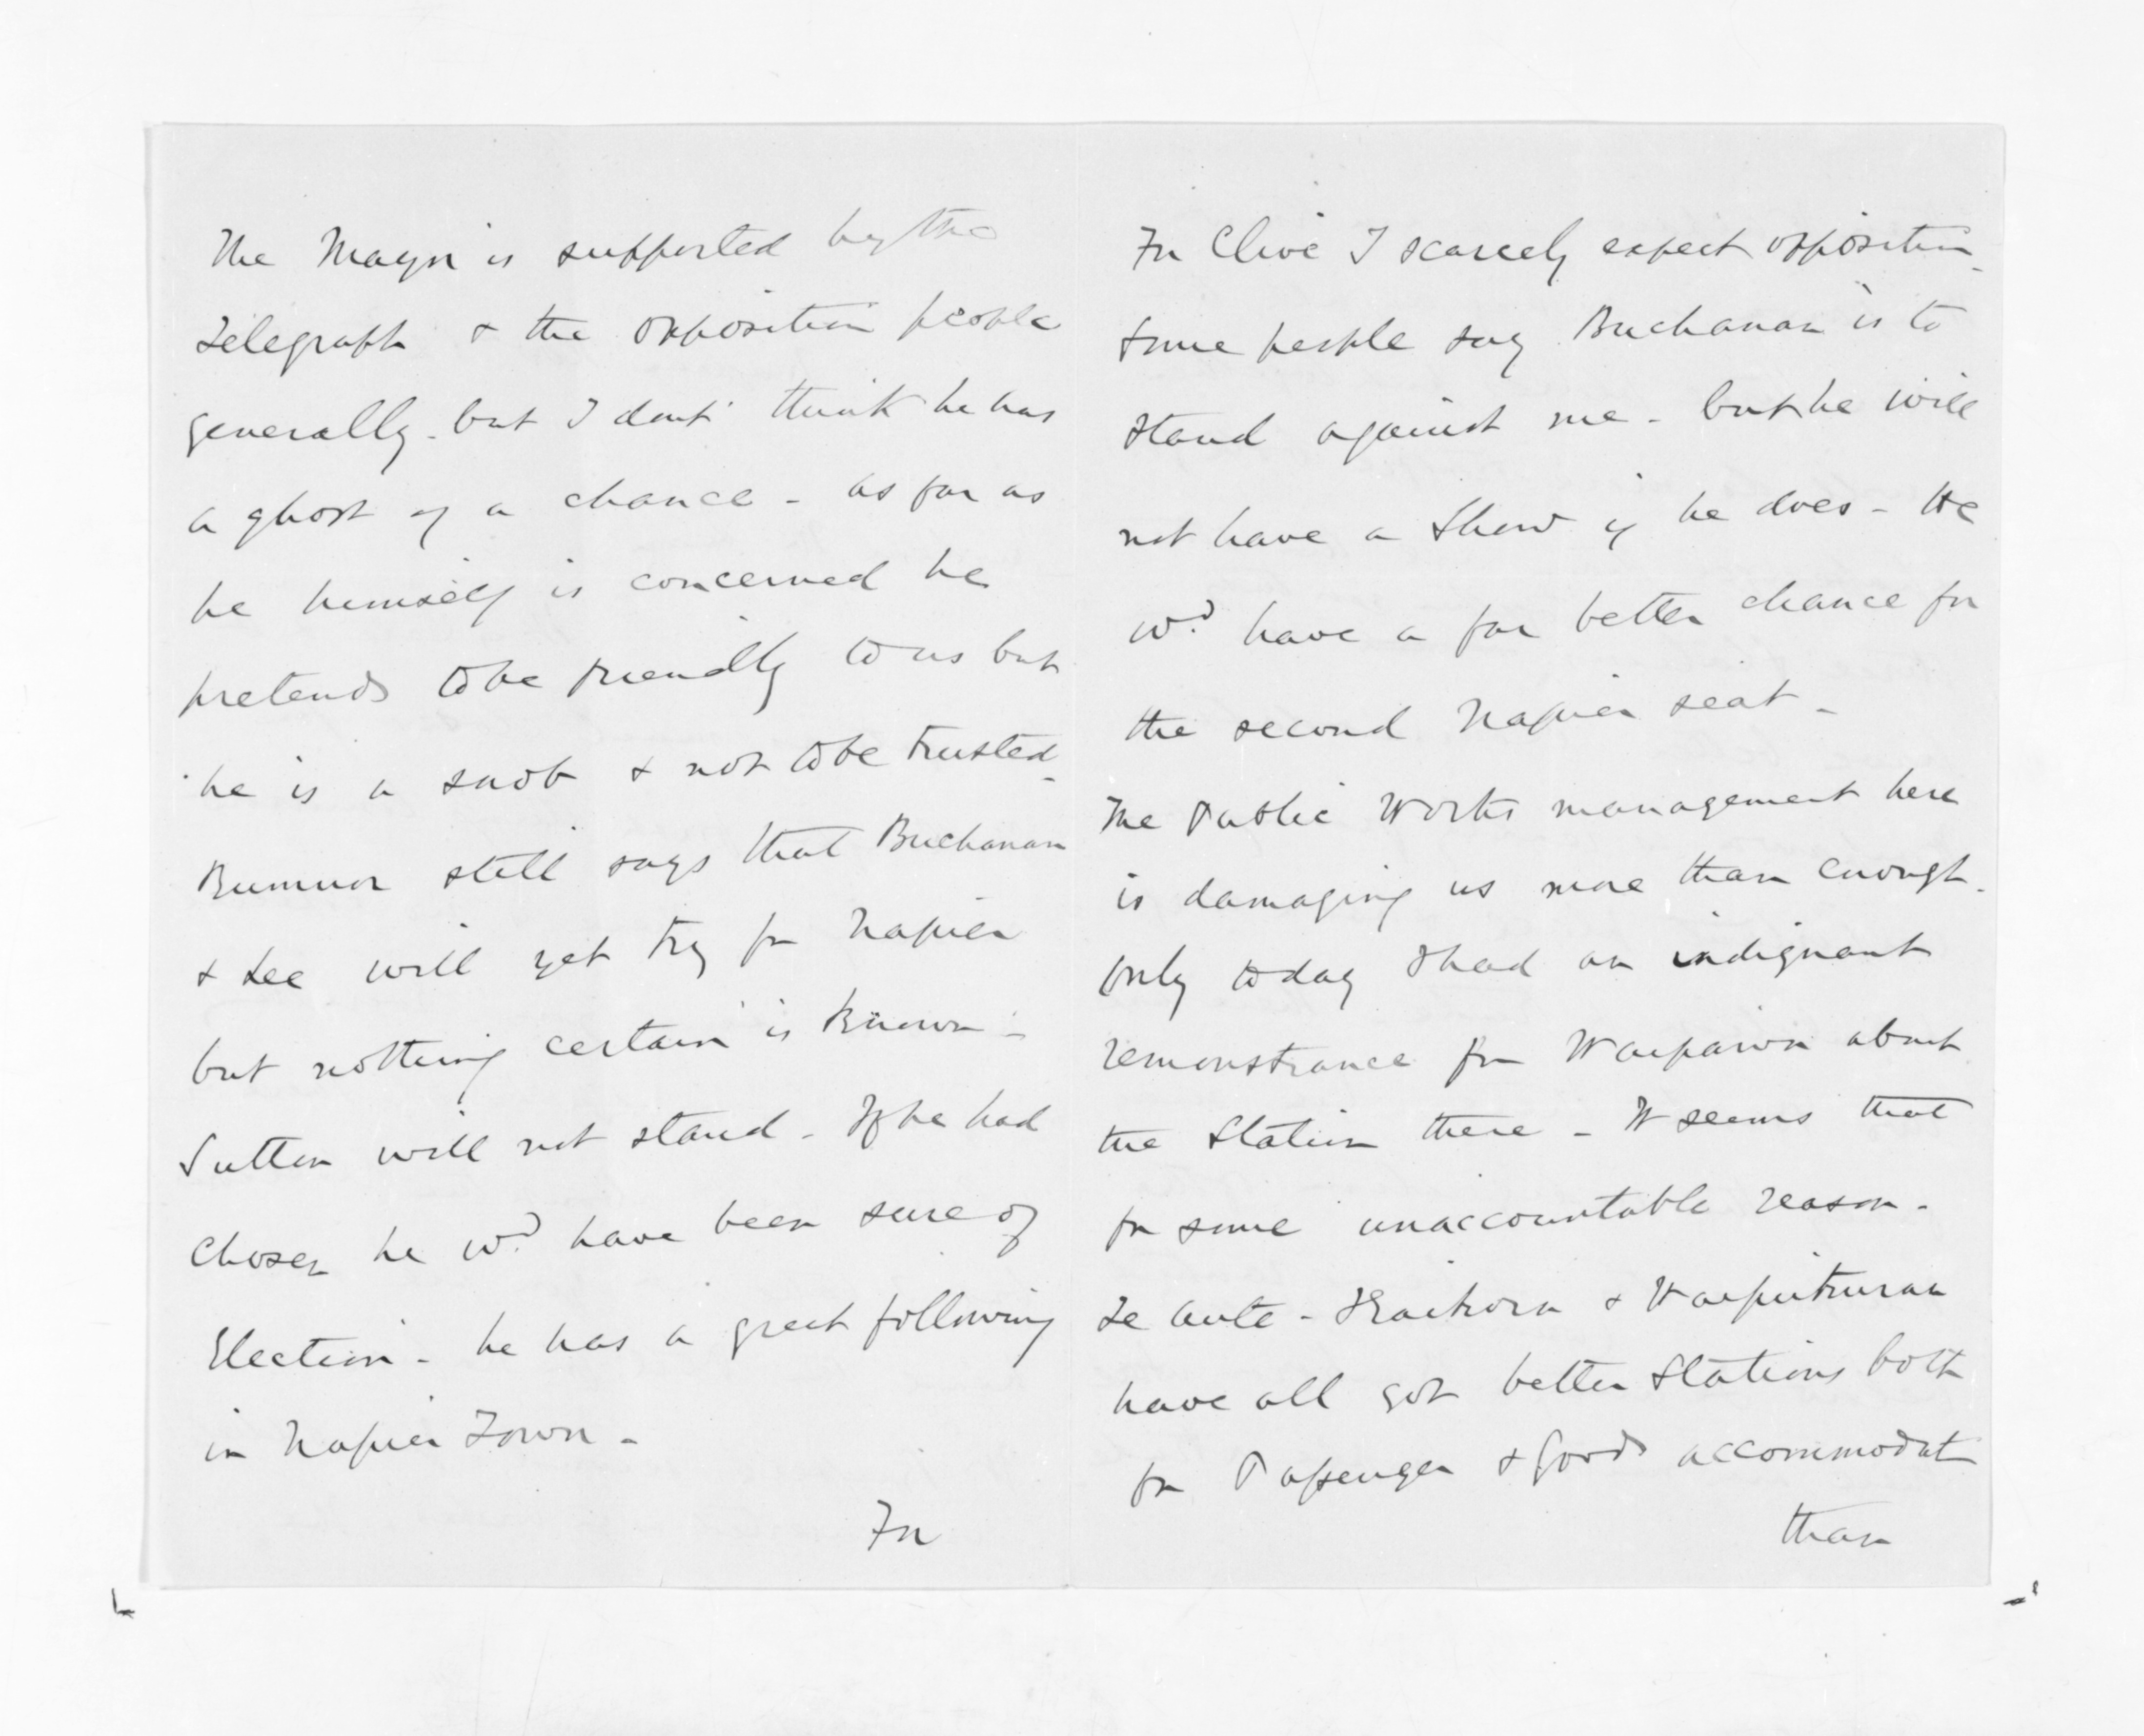 The Mayor is supported by the
Telegraph & the opposition people
generally - but I dont think he has
a ghost of a chance - as far as
he himself is concerned he
pretends to be friendly to us but
he is a snob & not to be trusted -
Rumour still says that Buchanan
& Lee will yet try for Napier
but nothing certain is known -
Sutton will not stand - If he had
chosen he wd. have been sure of
Election - he has a great following
in Napier Town -
For
For Clive I scarcely expect opposition -
Some people say Buchanan is to
stand against me - but he will
not have a show if he does - He
wd. have a far better chance for
the second Napier seat -
The Public Works management here
is damaging us more than enough -
Only today I had an indignant
remonstrance fm Waipawa about
the Station there - It seems that
for some unaccountable reason -
Te Aute - Kaikora & Waipukurau
have all got better Stations both
for Passenger & Goods accommodat
than